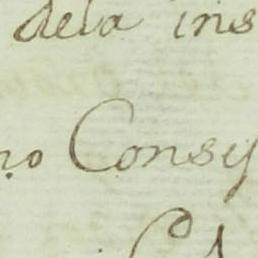 dela ins
no Consy